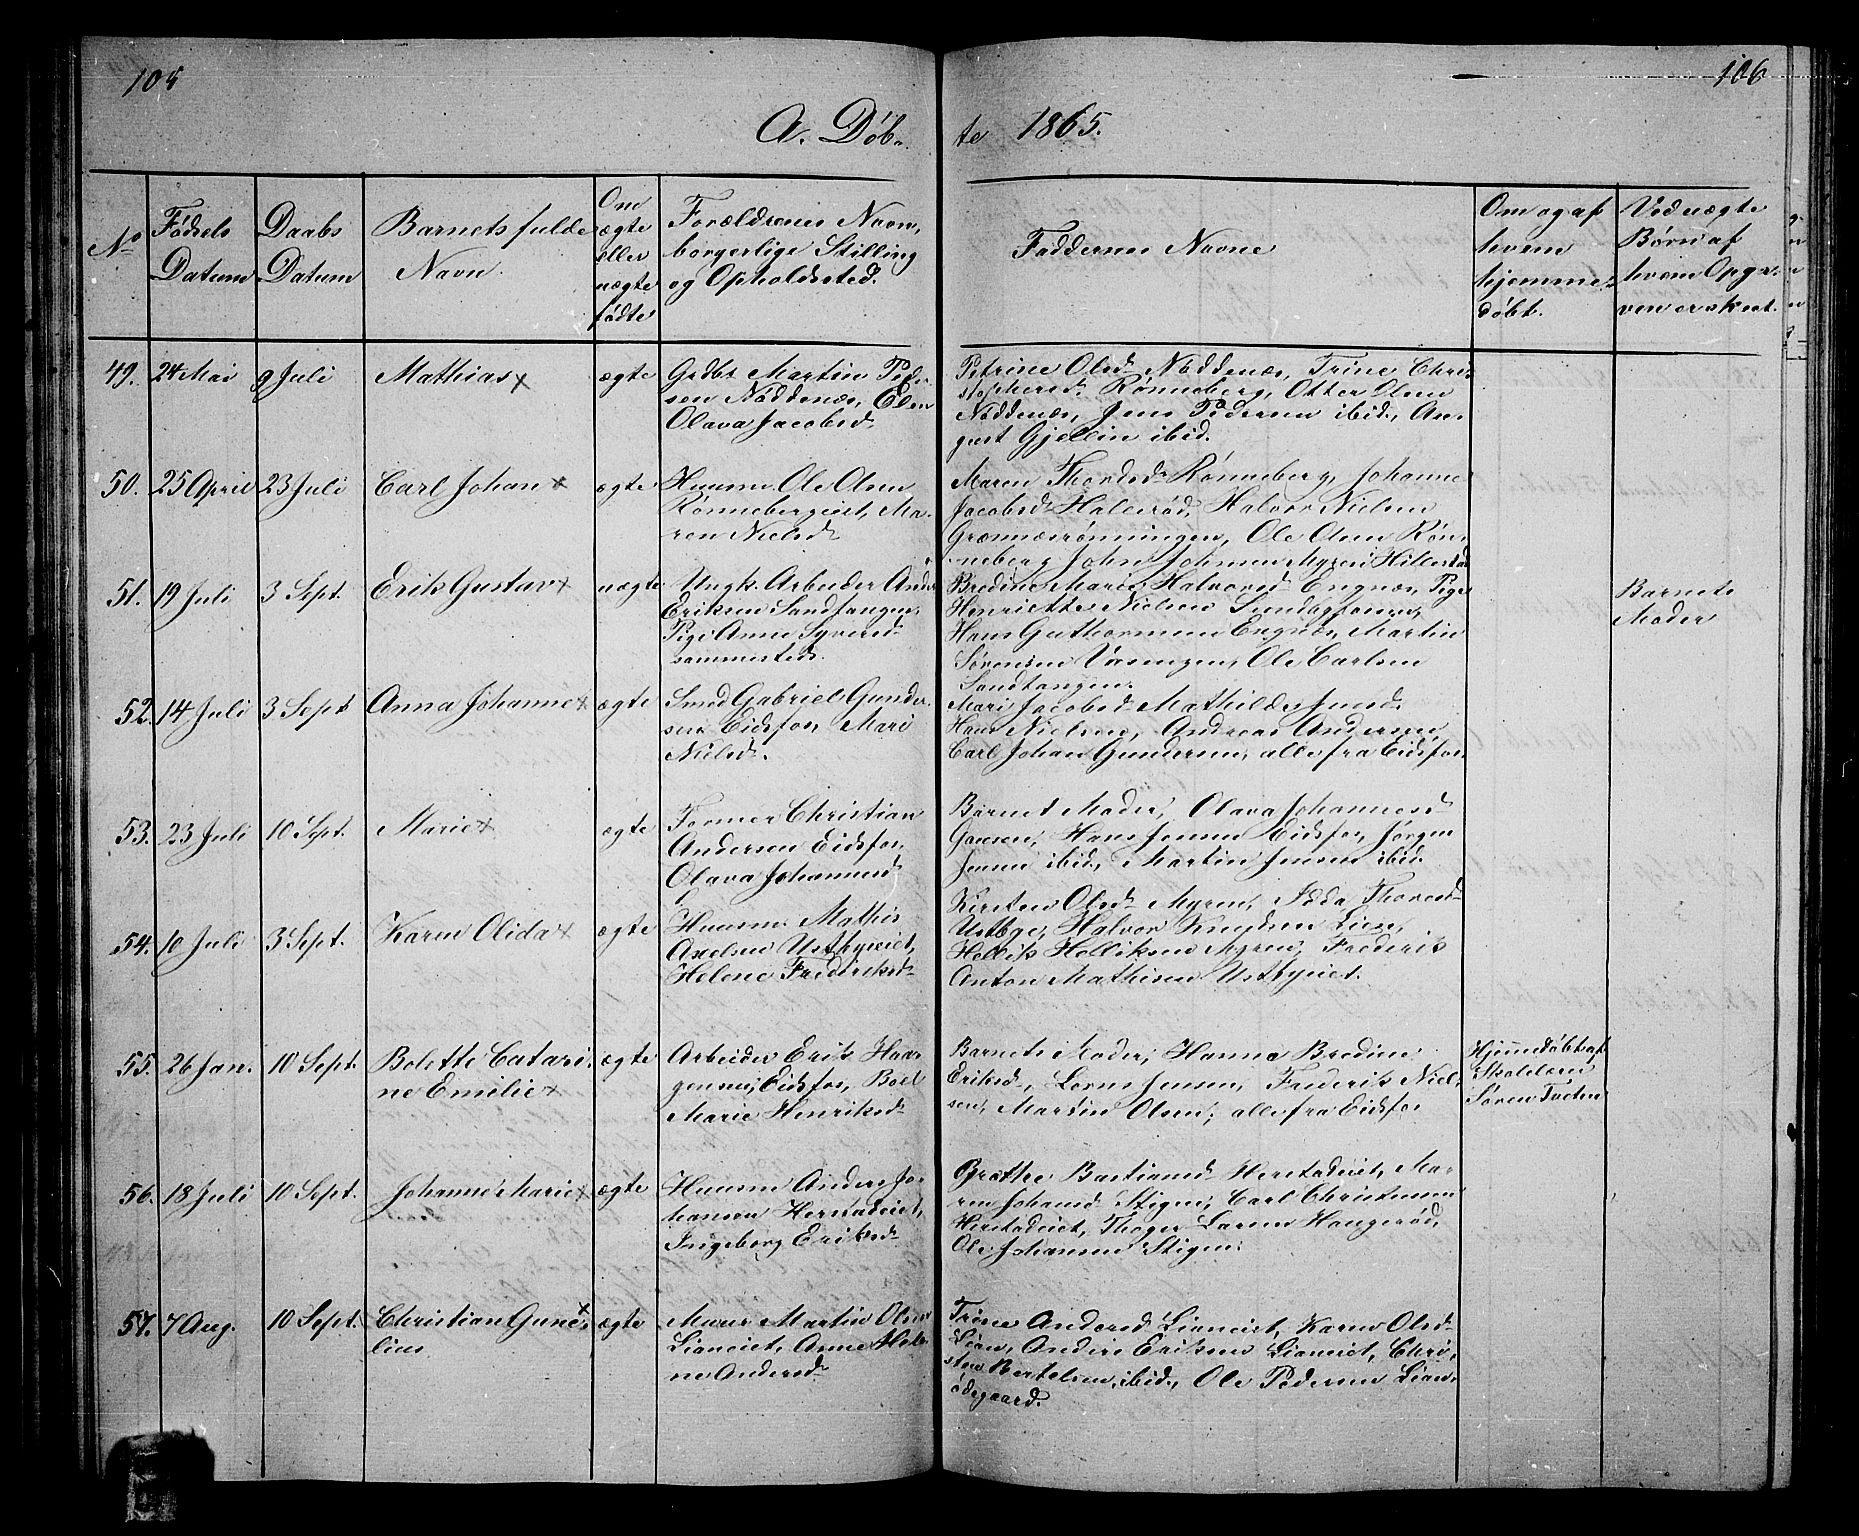 105
106
A. Døb-
te 1865.
No
Fødsels
Datum
Daabs
Datum
Barnets fulde
Navn.
Om
ægte
eller
uægte
født
Forældrenes Navn,
borgerlige Stilling
og Opholdssted.
Faddernes Navne
Om og af
hvem
hjemme-
døbt.
Ved uægte
Børn af
hvem Opga-
ven er skeet.
49. 24 Mai 9 Juli Mathias x ægte
Grdbr Martin Peder-
sen Naddenæs, Elen
Olava Jacobsd.
Petrine Olsd. Naddenæs, Trine Chri-
stophersd. Rønneberg, Otter Olsen
Naddenæs, Jens Pedersen ibid., Au-
gust Gjellin ibid.
50. 25 April 23 Juli Carl Johan x ægte
Huusm. Ole Olsen
Rønnebergeiet, Ma-
ren Nielsd.
Maren Thordsd. Rønneberg, Johanne
Jacobsd. Hallerød, Halvor Nielsen
Grennæsrønningen, Ole Olsen Røn-
neberg, John Johnsen Myren Hillestad
51. 19 Juli 3 Sept. Erik Gustav x uægte
Ungk. Arbeider Anders
Eriksen Sandtangen,
Pige Anne Syversd.
sammesteds.
Bredine Marie Halvorsd. Engnæs, Pige
Henriette Nielsen Sundagfossen,
Hans Guthormsen Engnæs, Martin
Sørensen Vasengen, Ole Carlsen
Sandtangen.
Barnets
Moder
52. 14 Juli 3 Sept Anna Johanne x ægte
Smed Gabriel Gunder-
sen Eidsfos, Mari
Nielsd.
Mari Jacobsd. Mathilde Jensd.
Hans Nielsen, Andreas Andersen,
Carl Johan Gundersen, alle fra Eidsfos.
53. 23 Juli 10 Sept. Marie x ægte
Former Christian
Andersen Eidsfos,
Olava Johannesd
Barnets Moder, Olava Johannesd
Gaasen, Hans Jensen Eidsfos, Jørgen
Jensen ibid., Martin Jensen ibid.
54. 10 Juli 3 Sept. Karen Olida x ægte
Huusm. Mathis
Axelsen Ustbyeiet,
Helene Frederiksd.
Kirsten Olsd. Myren, Idda Thoresd.
Ustbye, Halvor Knudsen Lien,
Hellik Helliksen Myren, Frederik
Anton Mathisen Ustbyeiet.
55. 26 Jan. 10 Sept. Bolette Catari-
ne Emilie x
ægte
Arbeider Erik Haar-
gensen, Eidsfos, Boel
Marie Henriksd.
Barnets Moder, Hanna Bredine
Eriksd., Lorns Jensen, Frederik Niel-
sen, Martin Olsen, alle fra Eidsfos
Hjemmedøbt af
Skolelærer
Søren Tveten
56. 18 Juli 10 Sept. Johanne Marie x ægte
Huusm Anders Jo-
hansen Herstadeiet,
Ingeborg Eriksd.
Grethe Bastiansd. Herstadeiet, Ma-
ren Johansd. Stigen, Carl Christensen
Herstadeiet, Thoger Larsen Haugerød,
Ole Johannesen Stigen.
57. 7 Aug. 10 Sept. Christian Gune- x
lius
ægte
Murer Martin Olsen
Lianeiet, Anne Hele-
ne Andersd.
Trine Andersd. Lianeiet, Karen Olsd.
Lian, Anders Eriksen Lianeiet, Chri-
sten Bertelsen, ibid., Ole Pedersen Lian-
ødegaard.